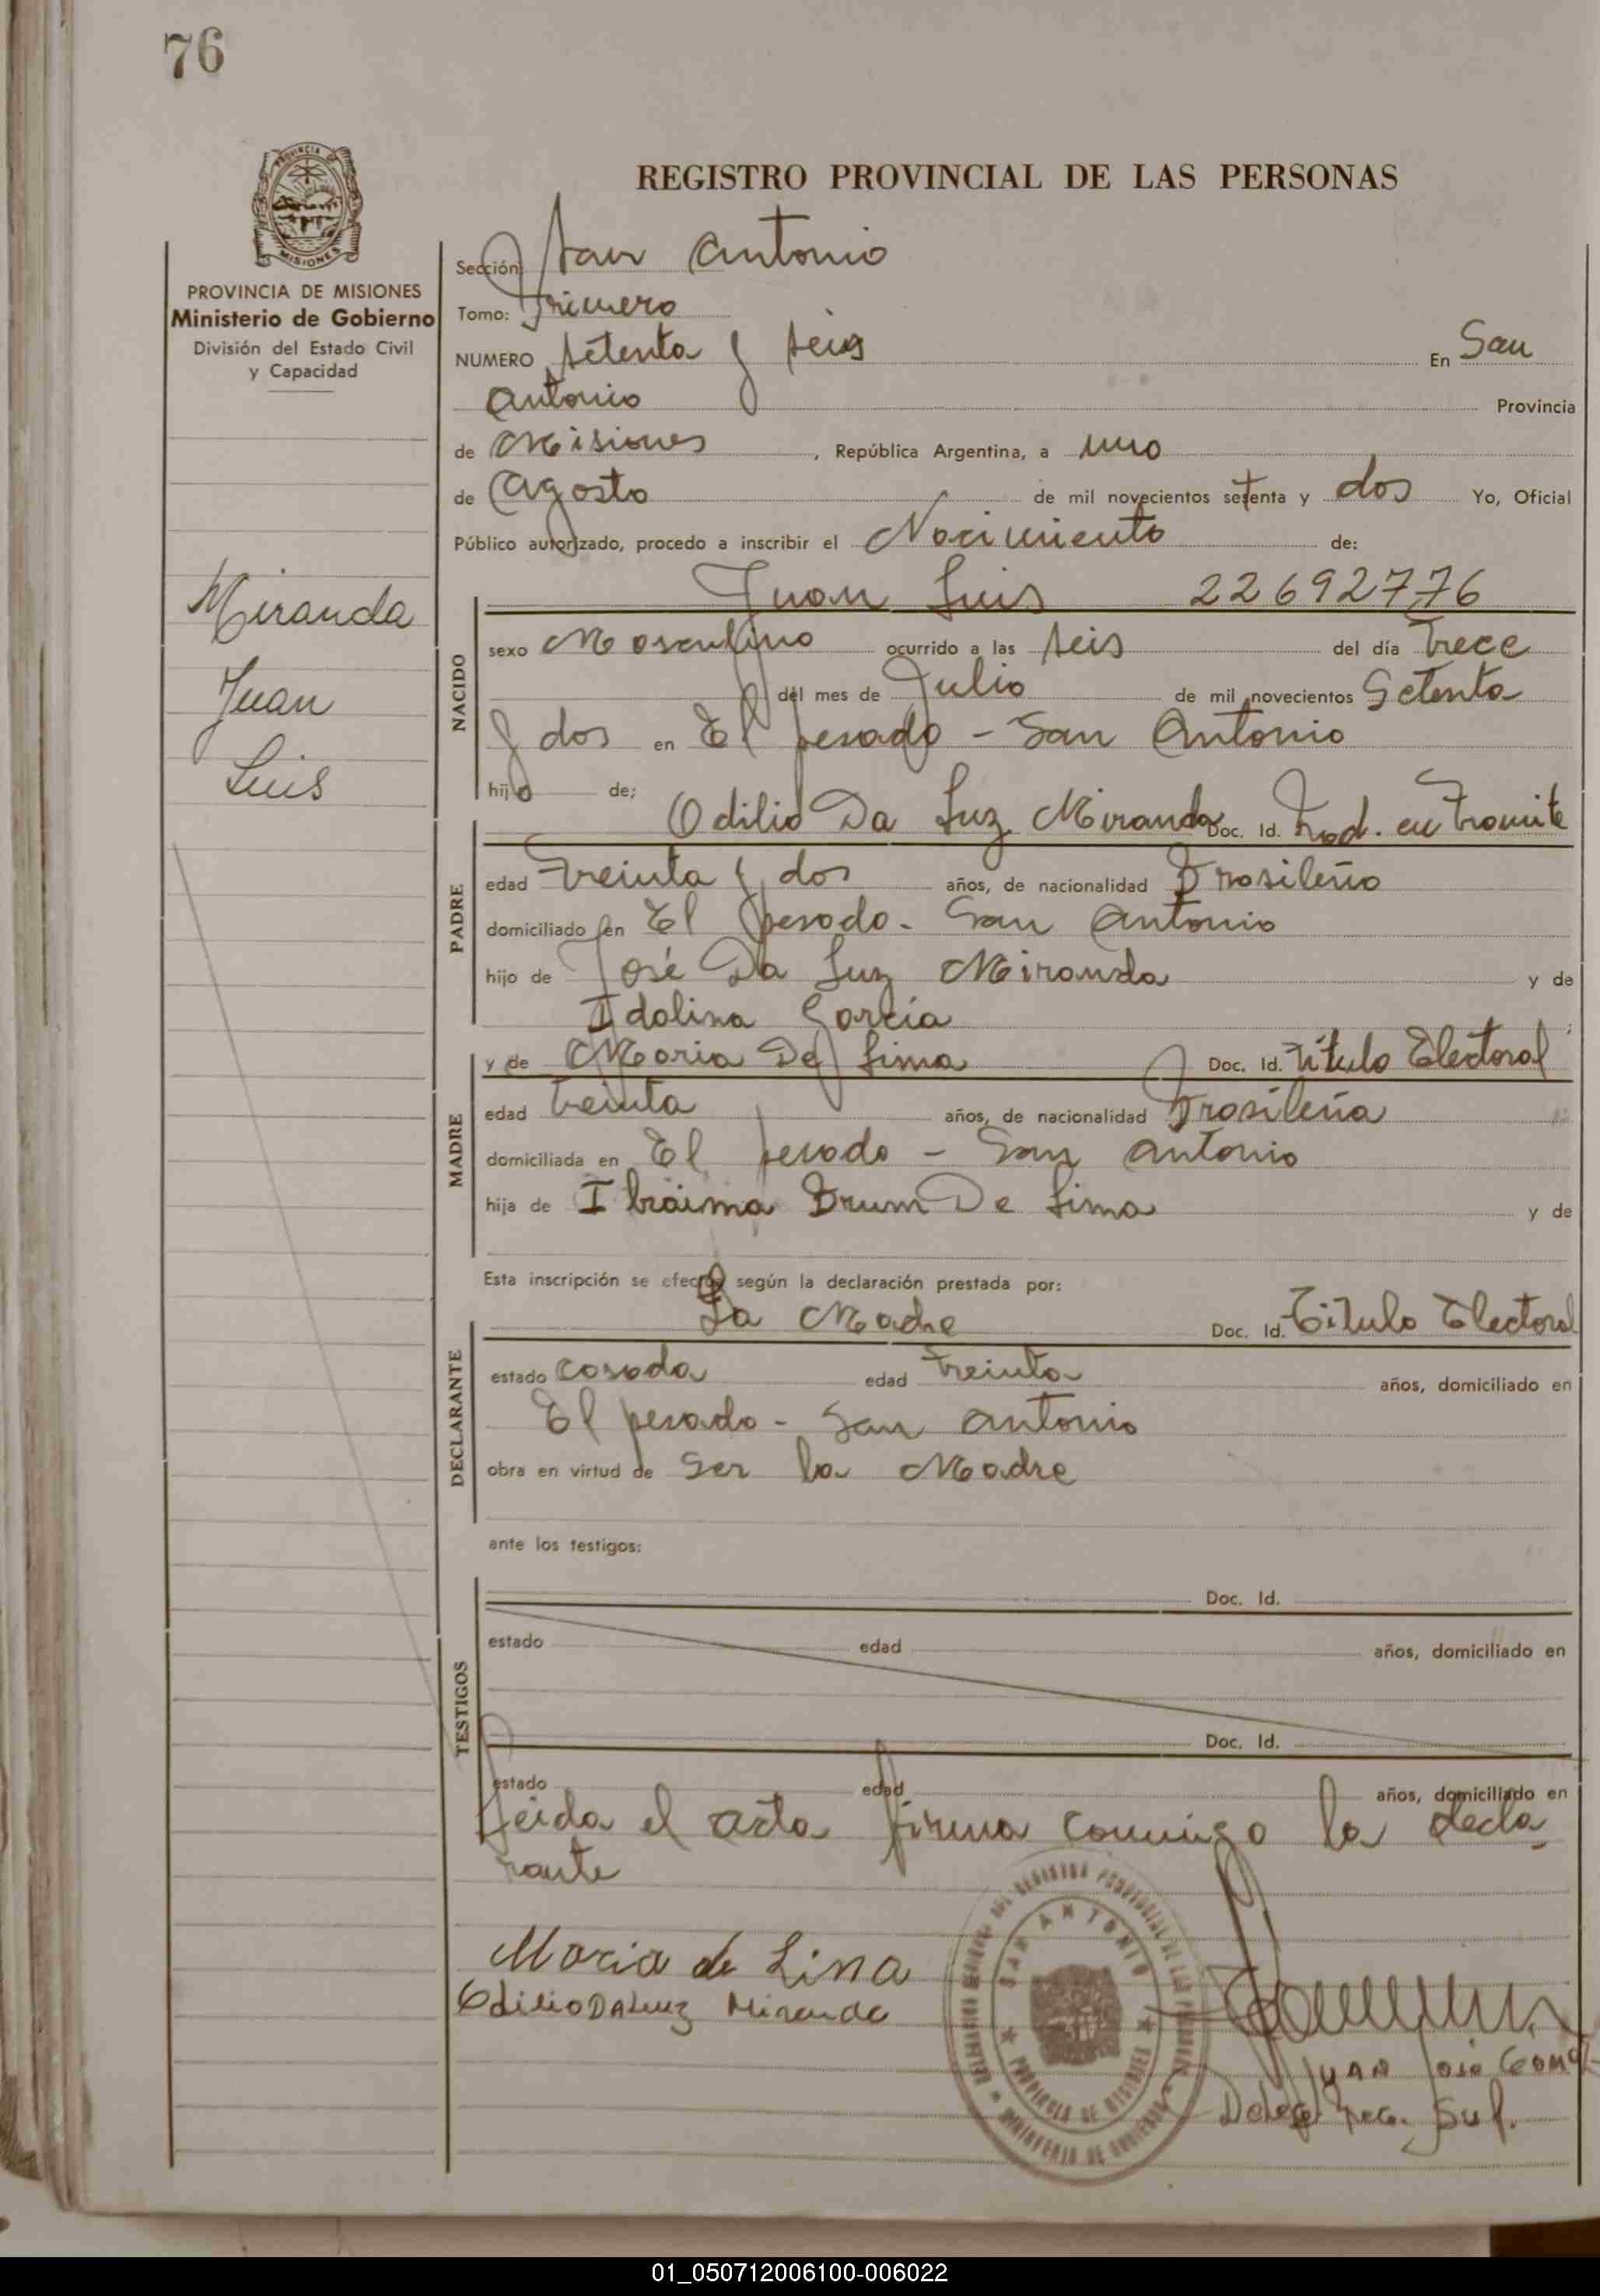 76
PROVINCIA DE
MISIONES
REGISTRO PROVINCIAL DE LAS PERSONAS
PROVINCIA DE MISIONES
Ministerio de Gobierno
División del Estado Civil
y Capacidad
Miranda
Juan
Luis
Sección: San Antonio
Tomo: Primero
NUMERO setenta y seis En San
Antonio Provincia
de Misiones, República Argentina, a uno
de Agosto de mil novecientos setenta y dos Yo, Oficial
Público autorizado, procedo a inscribir el Nacimiento de:
Juan Luis 22692776
NACIDO
sexo Masculino ocurrido a las seis del día trece
del mes de Julio de mil novecientos Setenta
y dos en El pesado - San Antonio
hijo de;
Odilio Da Luz Miranda Doc. Id. Rad. en Tramite
PADRE
edad treinta y dos años, de nacionalidad Brasileño
domiciliado en El pesado - San Antonio
hijo de José Da Luz Miranda y de
Idolina Garcia ;
y de Maria De Lima Doc. Id. Titulo Electoral
MADRE
edad treinta años, de nacionalidad Brasileña
domiciliada en El pesado - San Antonio
hija de Ibraima Brum De Lima y de
Esta inscripción se efectúa según la declaración prestada por:
La Madre Doc. Id. Titulo Electoral
DECLARANTE
estado casada edad treinta años, domiciliado en
El pesado - San Antonio
obra en virtud de Ser la Madre
ante los testigos:
TESTIGOS
Doc. Id.
estado edad años, domiciliado en
Doc. Id.
estado edad años, domiciliado en
Leida el acta firma conmigo la decla
rante
Maria de Lima
Odilio Da Luz Miranda
SAN ANTONIO
PROVINCIA DE MISIONES
JUAN José Gomez
Deleg. Sup.
01_050712006100-006022